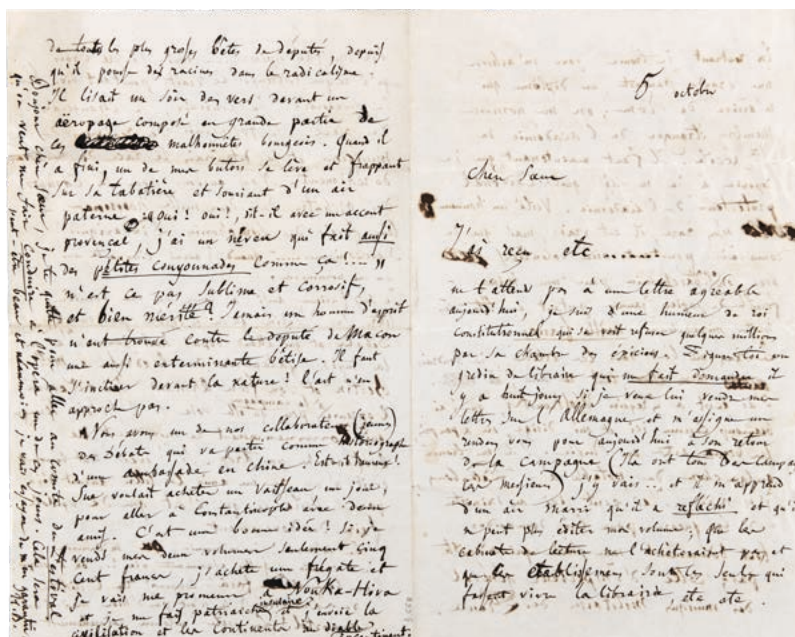 de toutes les plus grosses bêtes de députés, depuis
qu'il pousse des racines dans le radicalisme.
Il lisait un soir des vers devant un
aëropage composé en grande partie de
ces malhonnêtes bourgeois. Quand il
a fini, un de mes butors se lève et frappant
sur sa tabatière et souriant d'un air
paterne: «oui! oui!, dit-il avec un accent
provençal, j'ai un neveu qui fait aussi
des petites couyonnades comme ça!... »
n'est, ce pas sublime et corrosif,
et bien mérité? Jamais un homme d'esprit
n'eut trouvé contre le député de Macon
une aussi exterminante bêtise. Il faut
s'incliner devant la nature! l'art n'en
approche pas.
Nous avons un de nos collaborateurs (jeune)
des Débats qui va partir comme historiographe
d'une ambassade en Chine. Est-il heureux!
Sue voulait acheter un vaisseau un jour,
pour aller à Constantinople avec
amis. C'est une bonne idée! si je
vends mes deux volumes seulement cinq
cent francs, j'achète une frégate et
je vais me promener à Nouka-Hiva
et je me fais patriarche insulaire, j'envoie la
civilisation et les continents au diable
Bonjour chère sœur, je te quitte pour aller au comité du Festival
qu'on veut me faire conduire à l'opéra un de ces jours. Cela sera
peut-être beau et
H.B.
5 octobre
Chère Sœur
J'ai reçu etc............
ne t'attend pas à une lettre agréable
aujourd'hui, je suis d'une humeur de roi
constitutionnel qui se voit refuser quelques millions
par sa chambre des épiciers. Figure-toi un
gredin de libraire qui me fait demander il
y a huit jours si je veux lui vendre mes
lettres sur l'Allemagne et m'assigne un
rendez vous pour aujourd'hui à son retour
de la campagne (Ils ont tous des campagnes
ces messieurs) j'y vais... et il m'apprend
d'un air marri qu'il a réfléchi et qu'il
ne peut plus éditer mon volume; que les
cabinets de lecture ne l'achèteraient pas et
que ces établissemens sont les seuls qui
fassent vivre la librairie, etc etc.